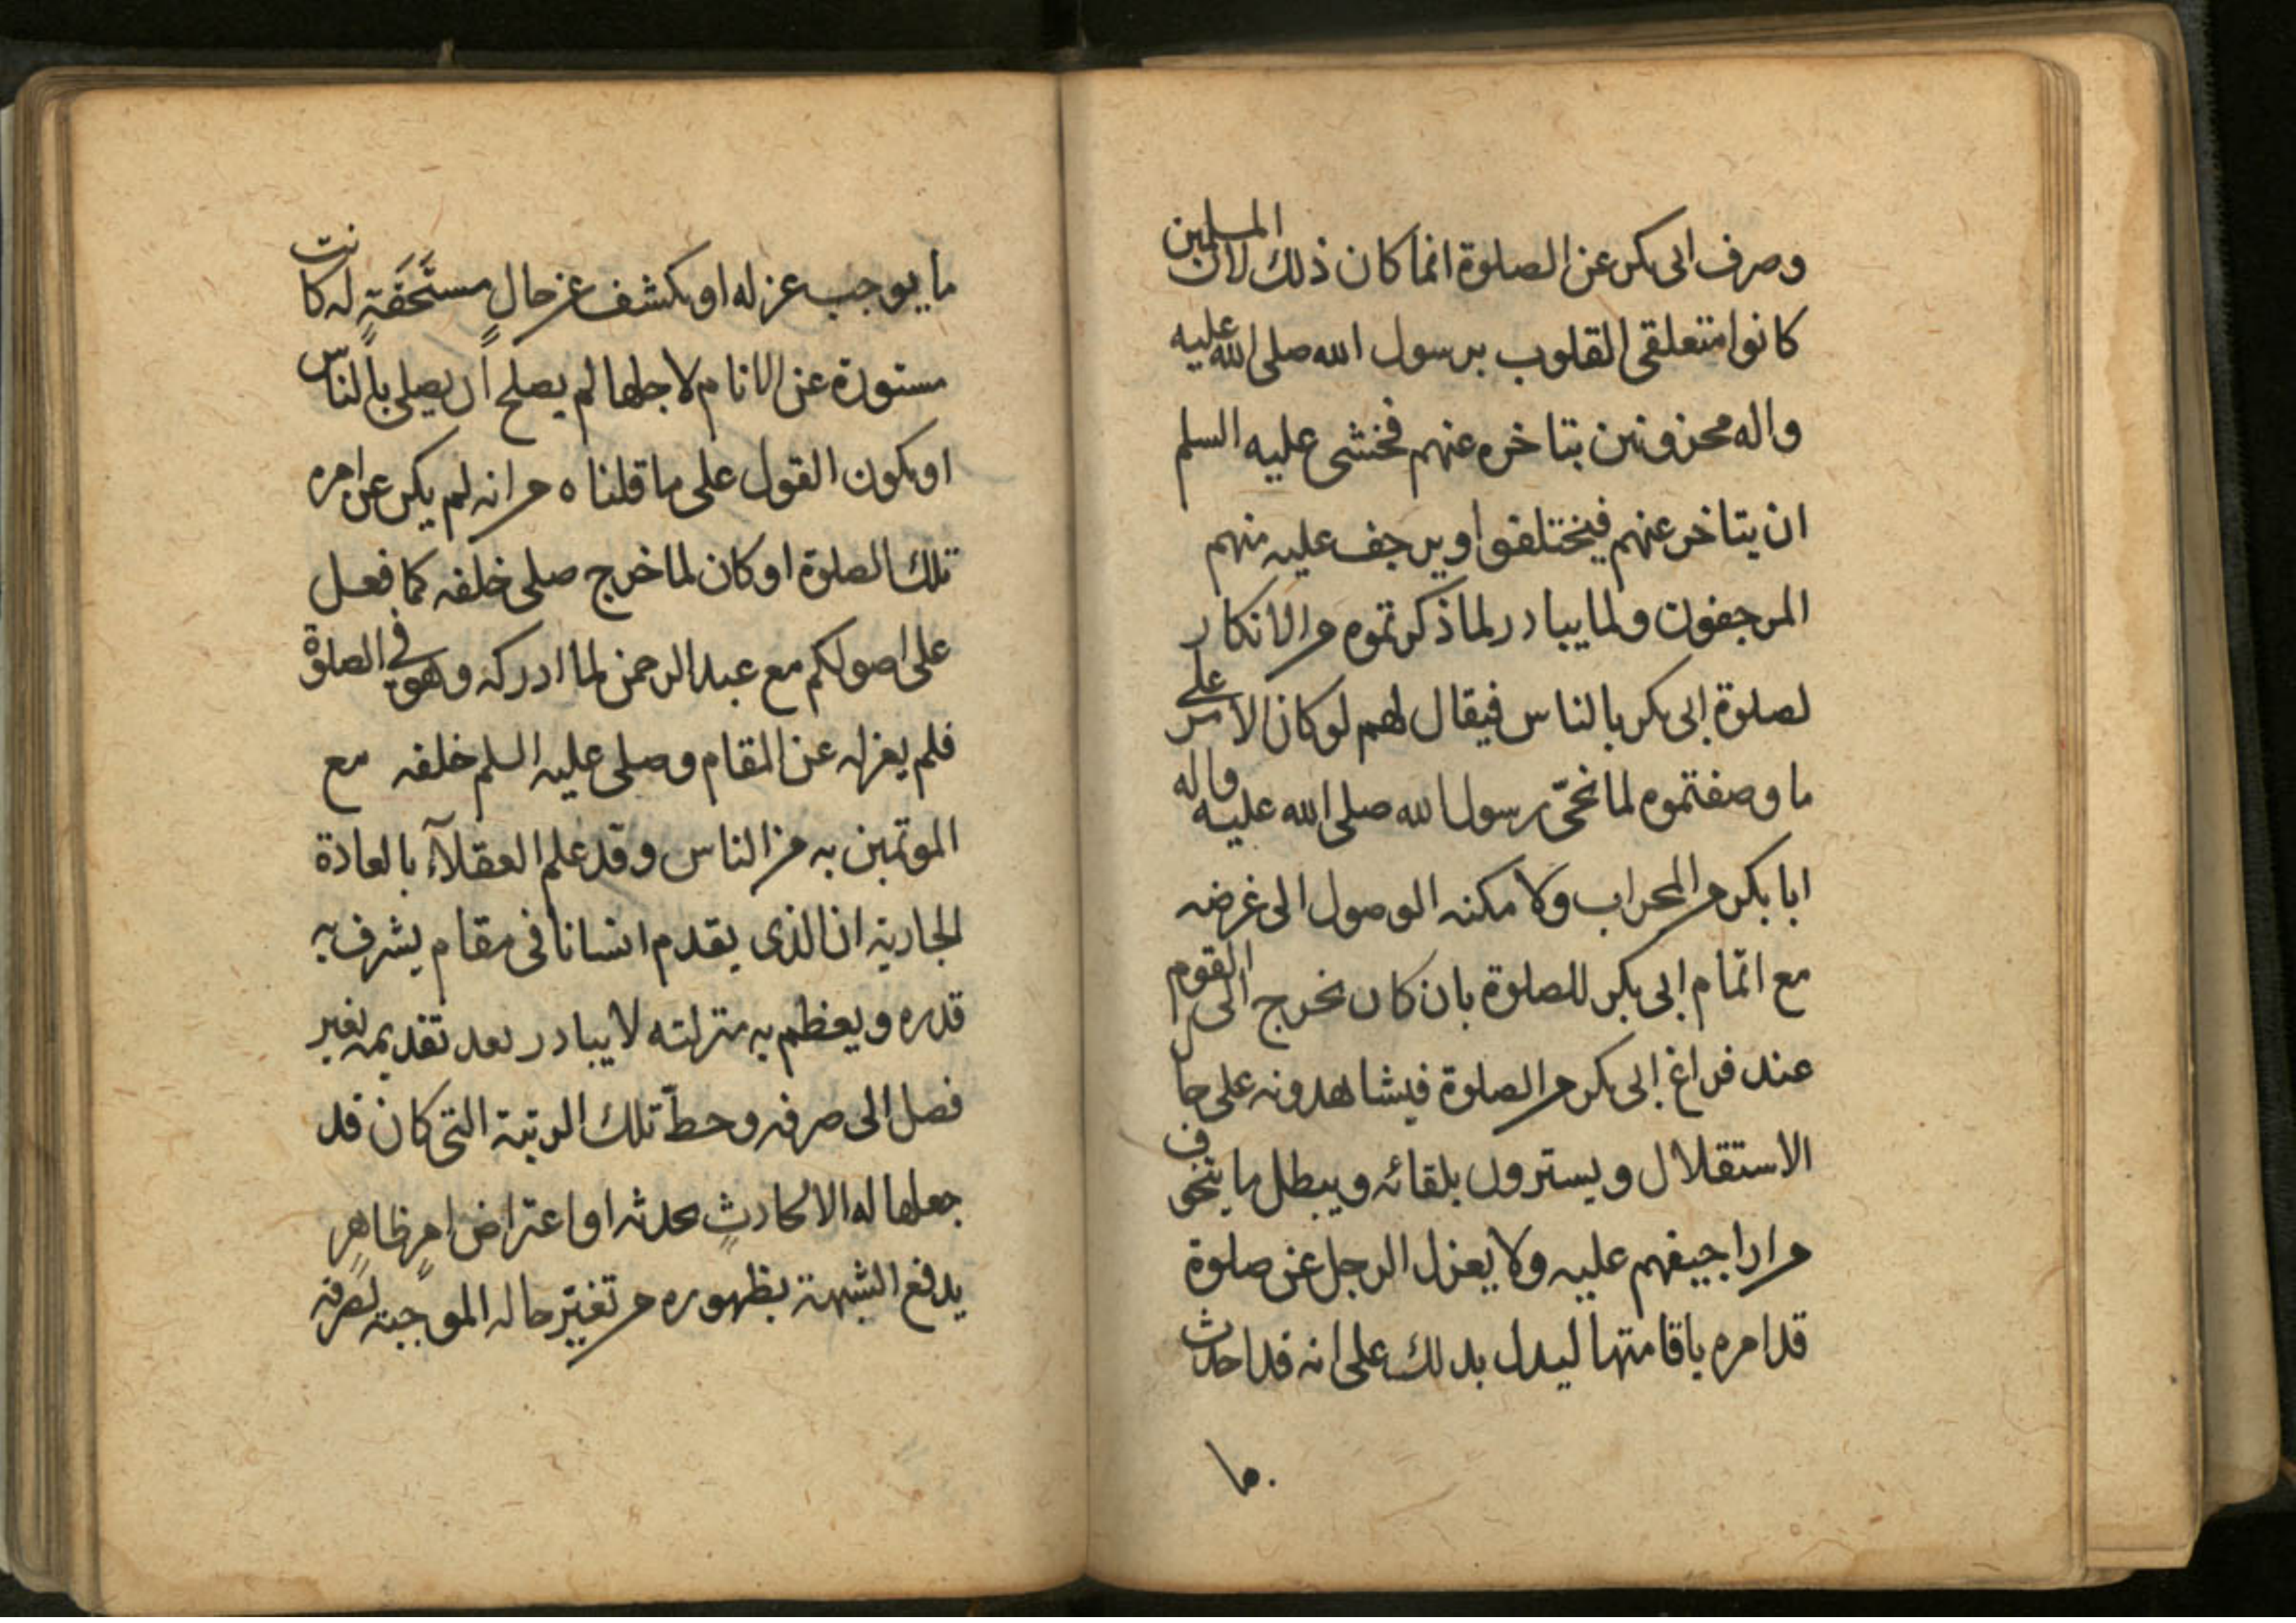 وصرف ابى بكر عن الصلوة انما كان ذلك لان المسلمين
كانوا متعلقى القلوب برسول الله صلى الله عليه
واله محزونين بتاخره عنهم فخشى عليه السلم
ان يتاخر عنهم فيختلفوا ويرجف عليه منهم
المرجفون ولما يبادر لما ذكرتموه من الانكار
لصلوة ابى بكر بالناس فيقال لهم لو كان الامر على
ما وصفتموه لما نحّى رسول الله صلى الله عليه واله
ابا بكر من المحراب ولا مكنه الوصول الى غرضه
مع اتمام ابى بكر للصلوة بان كان يخرج الى القوم
عند فراغ ابى بكر من الصلوة فيشاهدونه على حا
الاستقلال ويسترون بلقائه ويبطل ما يتخوف
من اراجيفهم عليه ولا يعزل الرجل عن صلوة
قد امره باقامتها ليدل بذلك على انه قد احدث
ما
ما يوجب عزله او يكشف عن حالٍ مستَحَقَةٍ له كانت
مستورة عن الانام لاجلها لم يصلح ان يصلى بالناس
او يكون القول على ما قلناه من انه لم يكن عن امره
تلك الصلوة او كان لما خرج صلى خلفه كما فعل
على اصولكم مع عبد الرحمن لما ادركه وهو فى الصلوة
فلم يعزله عن المقام وصلى عليه السلم خلفه مع
الموتمين به من الناس وقد علم العقلآء بالعادة
الجارية ان الذى يقدم انسانا فى مقام يشرف به
قدره ويعظم به منزلته لا يبادر بعد تقديمه بغير
فصل الى صرفه وحطّ تلك الرتبة التى كان قد
جعلها له الا لحادثٍ يحدثه او اعتراض امرٍ ظاهرٍ
يدفع الشبهة بظهوره من تغيّر حاله الموجبة لصرفه